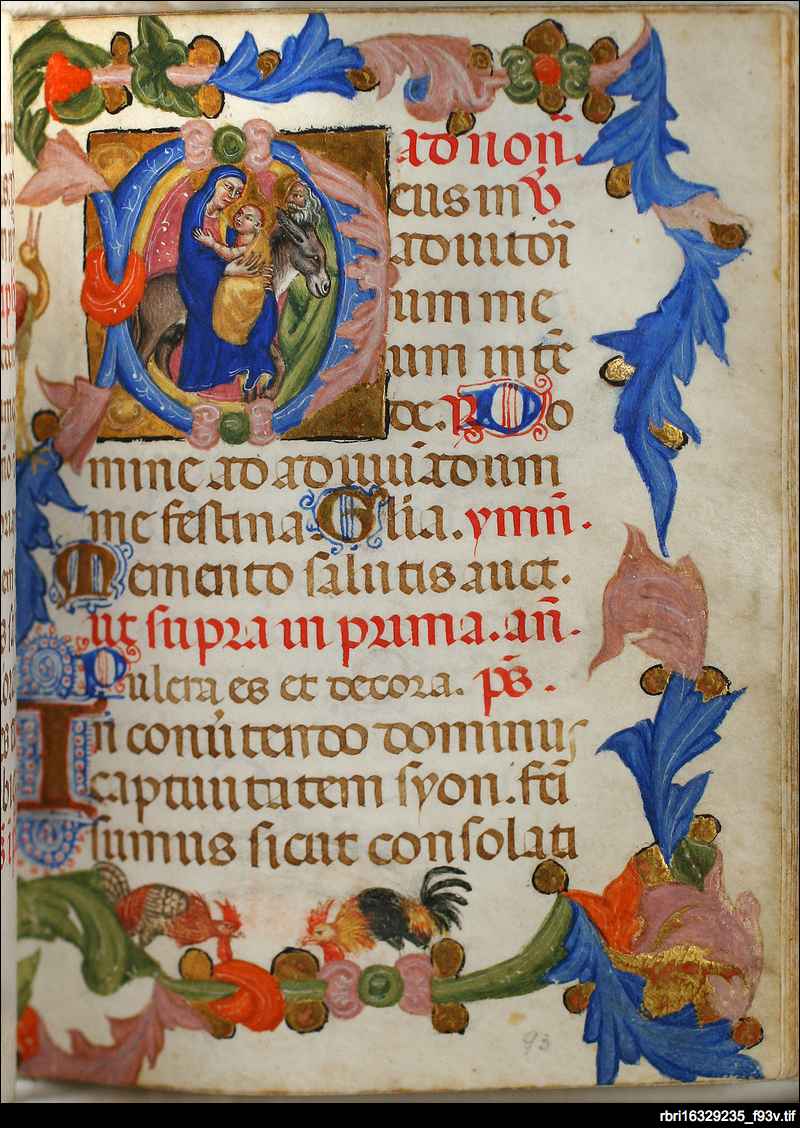 ad noñ.
eus in
adiutoī
um me
um intē
de. R Do
mine ad adiuuādum
me festina. Glīa. ymñ.
Memento salutis auct.
ut supra in prima. añ.
Pulcra es et decora. ps̄.
In conūtendo dominus
captiuitatem syon. fcī
sumus sicut consolati
93
rbri16329235_f93v.tif